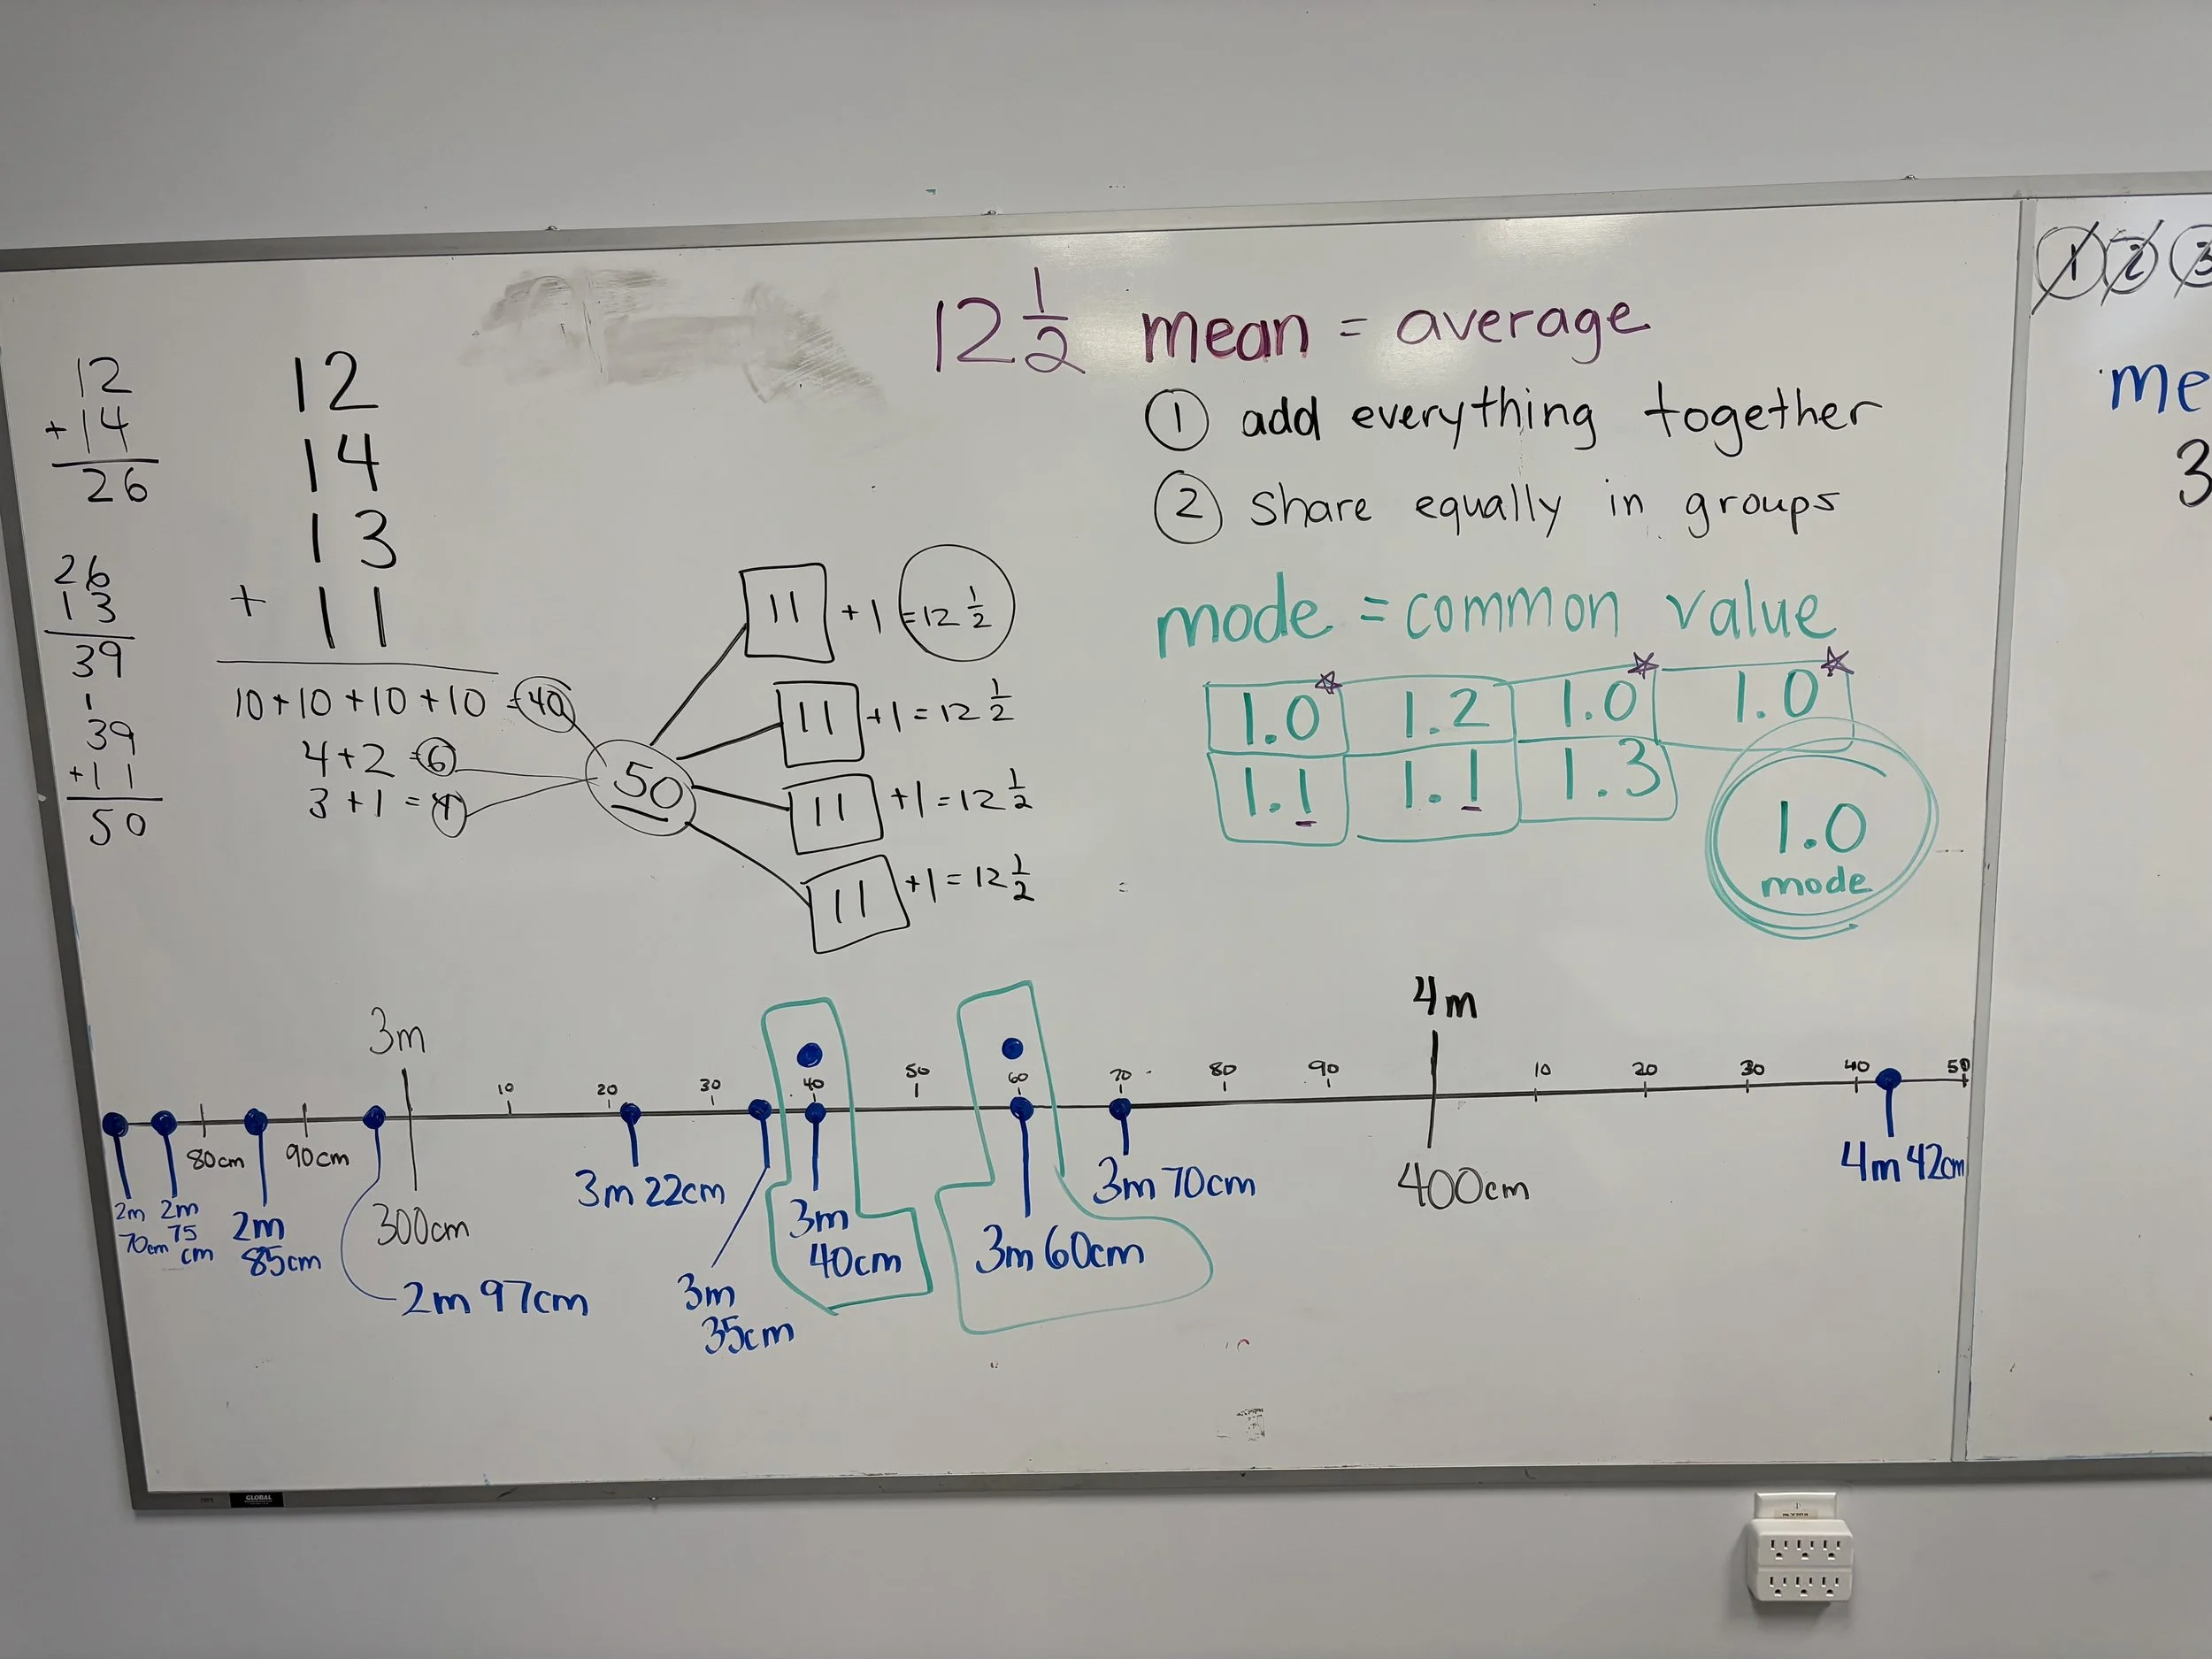 12 1/2 mean = average
① add everything together
② share equally in groups
mode = common value
1.0 1.2 1.0 1.0
1.1 1.1 1.3
1.0
mode
12
+14
26
26
13
39
1
39
+11
50
12
14
13
+ 11
10+10+10+10 =40
4+2 =6
3+1 =4
50
11 +1 =12 1/2
11 +1=12 1/2
11 +1=12 1/2
11 +1=12 1/2
① ② ③
me
3
3m
4m
10 20 30 40 50 60 70 80 90 10 20 30 40 50
80cm 90cm
300cm
400cm
2m
70cm
2m
75
cm
2m
85cm
2m 97cm
3m 22cm
3m
35cm
3m
40cm
3m 60cm
3m 70cm
4m 42cm
GLOBAL